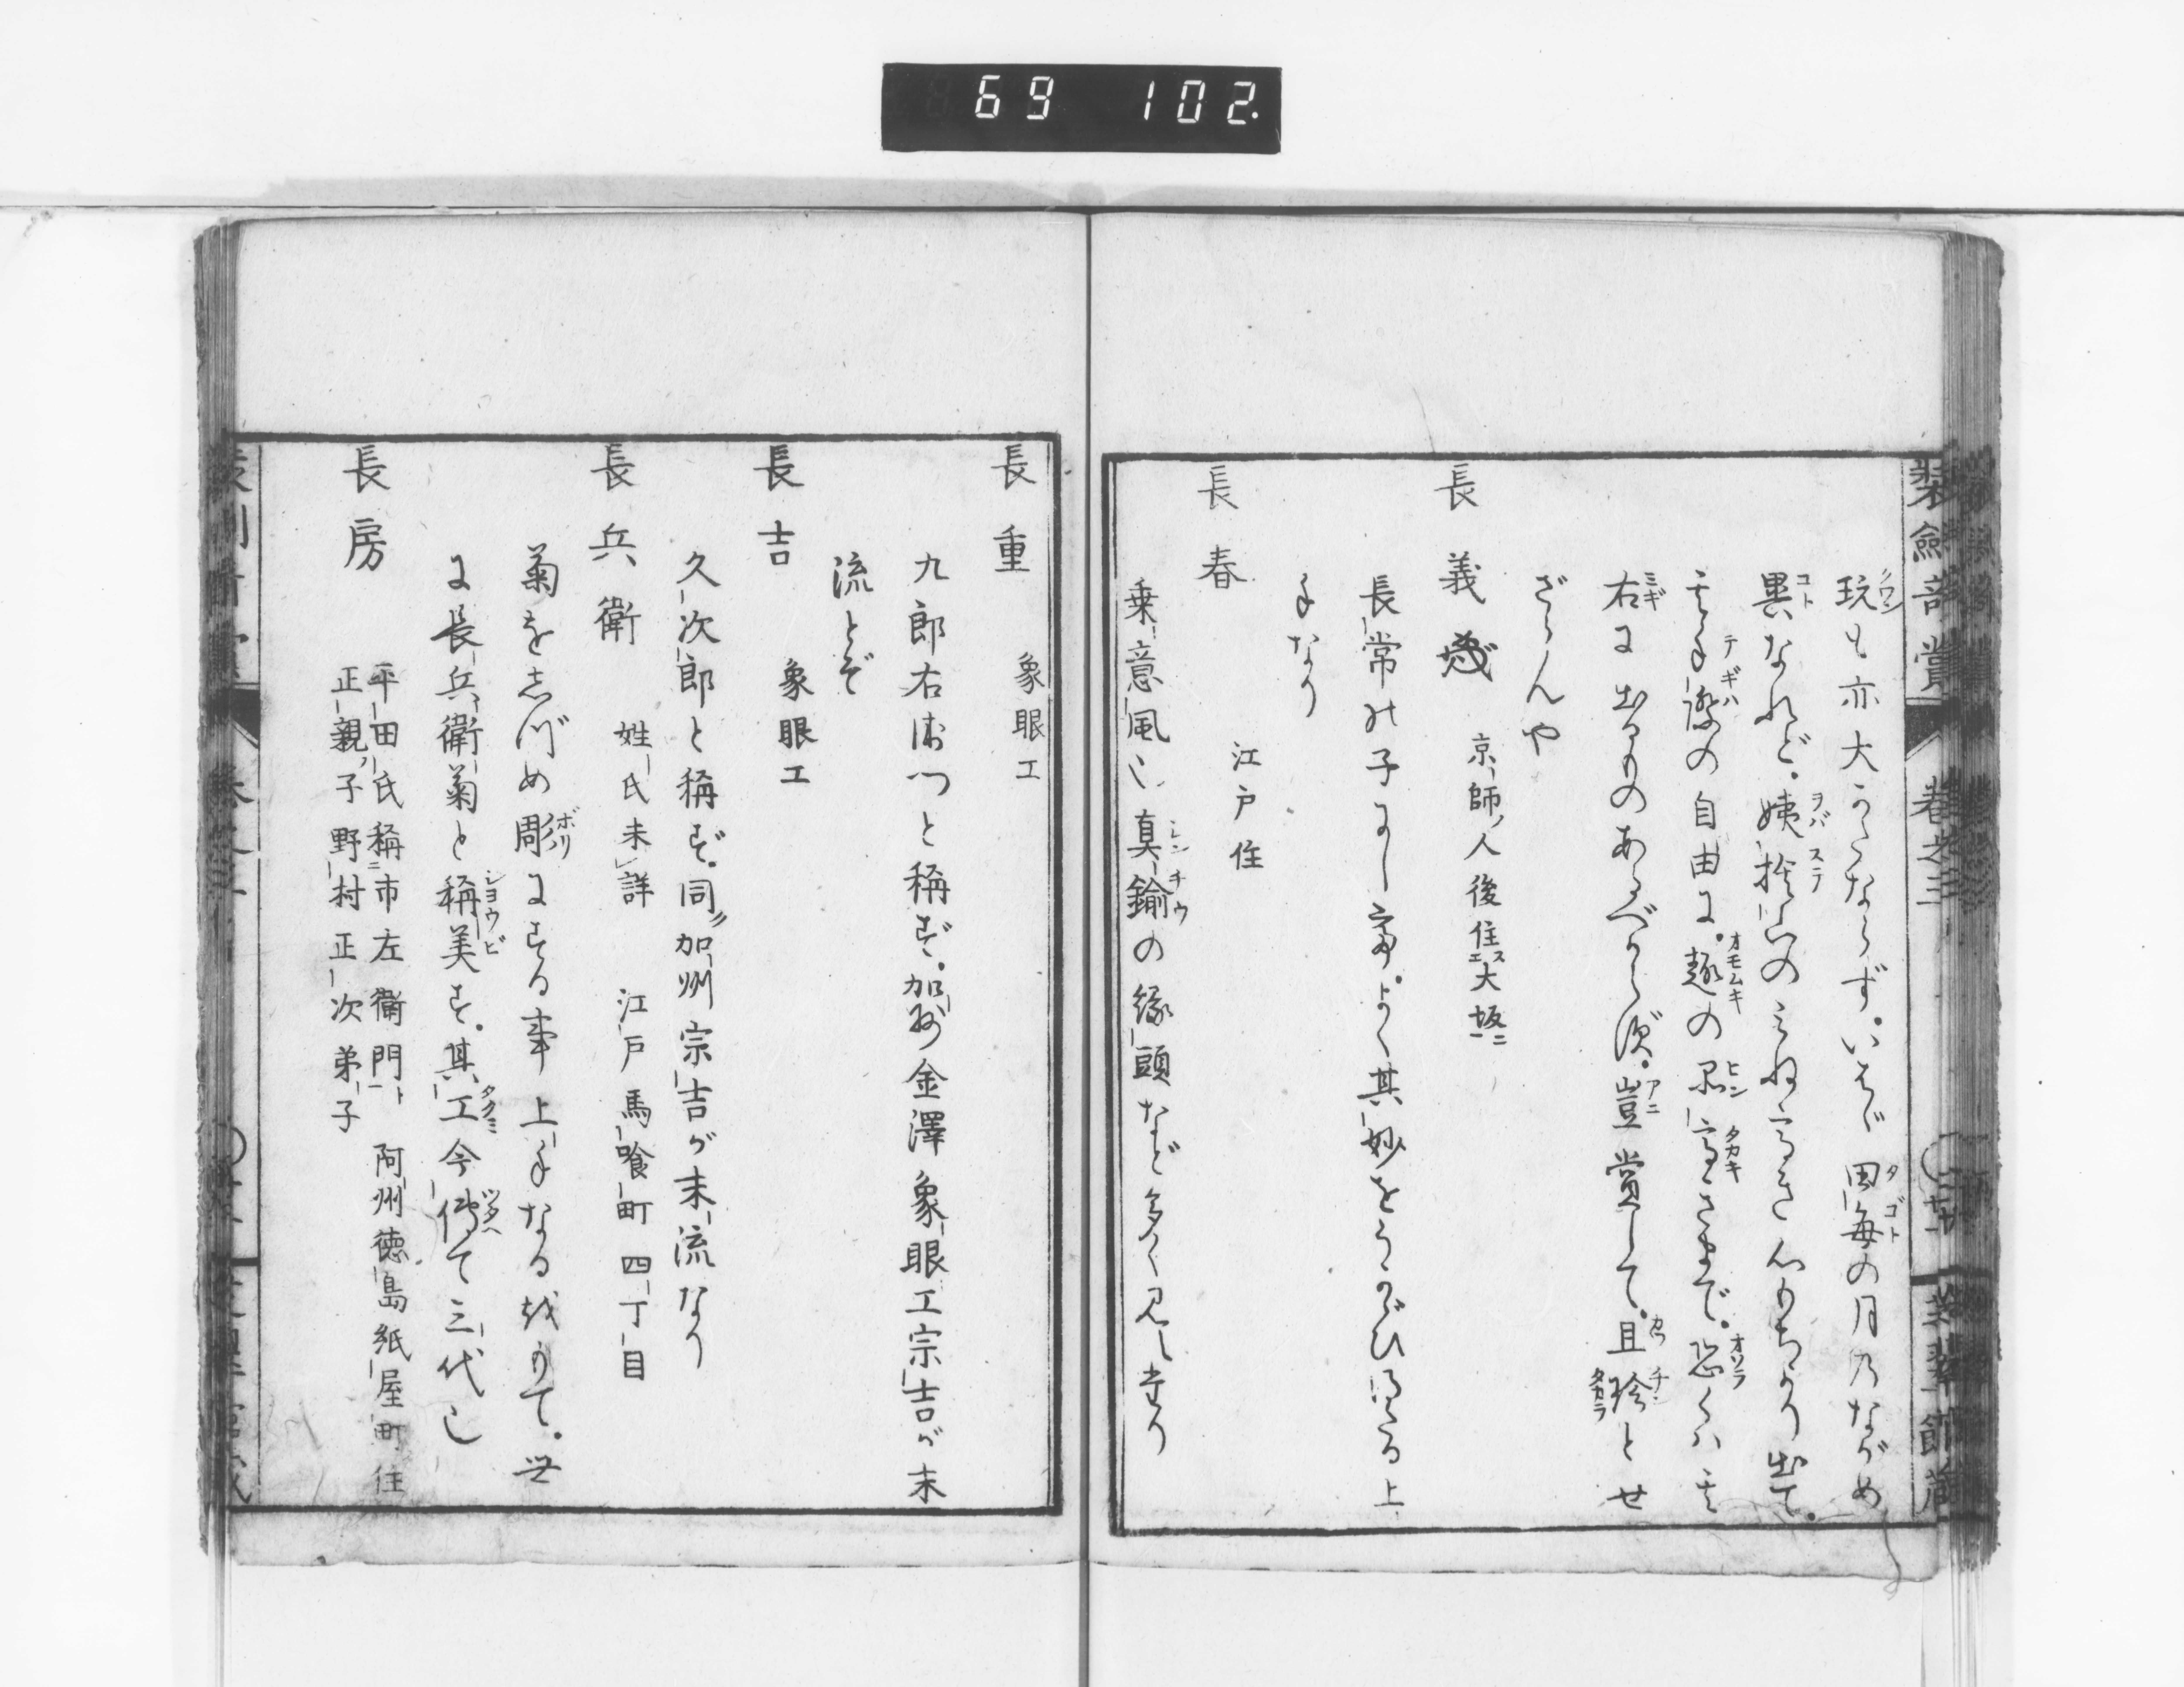 69 102.
玩も亦大かたならず。いはゞ田毎の月乃ながめ
異なれど。姨捨山のみね高き心もちより出て。
其手際の自由に。趣の品高きさまで。恐くハ其
右に出るものあるべからず。豈賞して。且珍とせ
ざらんや
長義 京師ノ人後住大坂
長常の子にし而。よく其妙をうかがひ得たる上
手なり
長春 江戸住
乗意風し真鍮の縁頭など多く見へ侍り
長重 象眼工
九郎右衛門と稱ず。加州金澤象眼工宗吉が末
流とぞ
長吉 象眼工
久次郎と稱ず。同加州宗吉が末流なり
長兵衛 姓氏未詳 江戸馬喰町四丁目
菊を志づめ彫にする事上手なる故もて。世
に長兵衛菊と稱美す。其工今傳て三代し
長房 平田氏稱市左衛門 阿州徳島紙屋町住
正親ノ子野村正次弟子